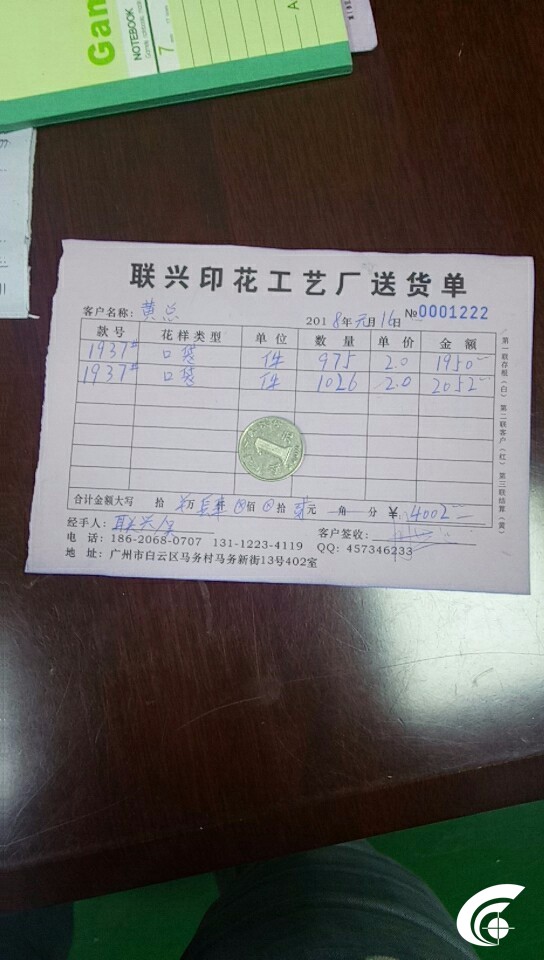 Gam
NOTEBOOK
7
联兴印花工艺厂送货单
客户名称：黄总 2018年元月16日 №0001222
款号 花样类型 单位 数量 单价 金额
1937# 口袋 件 975 2.0 1950
1937# 口袋 件 1026 2.0 2052
1
合计金额大写 拾 万 仟 佰 拾 贰元 角 分 ¥ 4002
经手人：联兴 客户签收：
电话：186-2068-0707 131-1223-4119 QQ: 457346233
地址：广州市白云区马务村马务新街13号402室
第一联存根（白） 第二联客户（红） 第三联结算（黄）